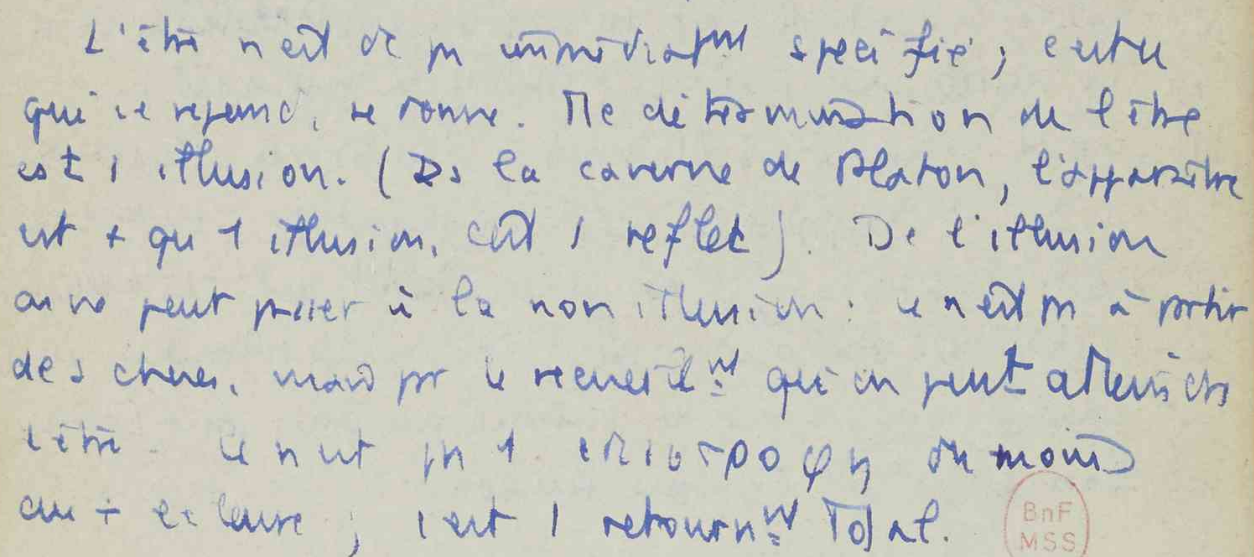 L'être n'est dc pas immédiatmt spécifié ; c'est ce
qui se répand, se donne. Tte détermination de l'être
est 1 illusion. (Ds la caverne de Platon, l'apparaître
est + qu'1 illusion, c'est 1 reflet). De l'illusion
on ne peut passer à la non illusion : ce n'est pas à partir
des choses, mais par le recueillmt qu'on peut atteindre
l'être. Ce n'est pas 1 επιστροφη du moins
au + éclairé ; c'est 1 retournmt Total.
BnF
MSS